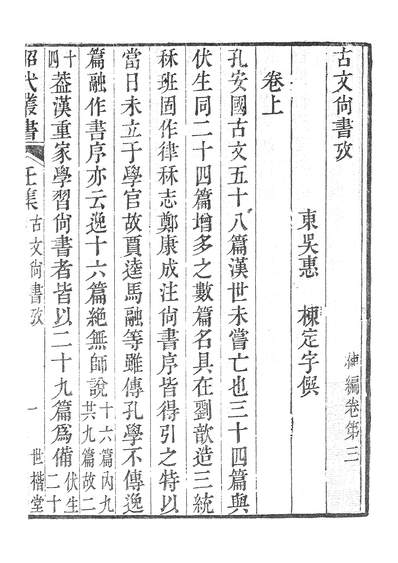 古文尚書攷
補編卷第三
東吳惠　棟定字僎
卷上
孔安國古文五十八篇漢世未嘗亡也三十四篇與
伏生同二十四篇增多之數篇名具在劉歆造三統
秝班固作律秝志鄭康成注尚書序皆得引之特以
當日未立于學官故賈逵馬融等雖傳孔學不傳逸
篇融作書序亦云逸十六篇絶無師說十六篇內九
共九篇故二
十
四葢漢重家學習尚書者皆以二十九篇爲備伏生
二十
昭代叢書　壬集　古文尚書攷　一　世楷堂